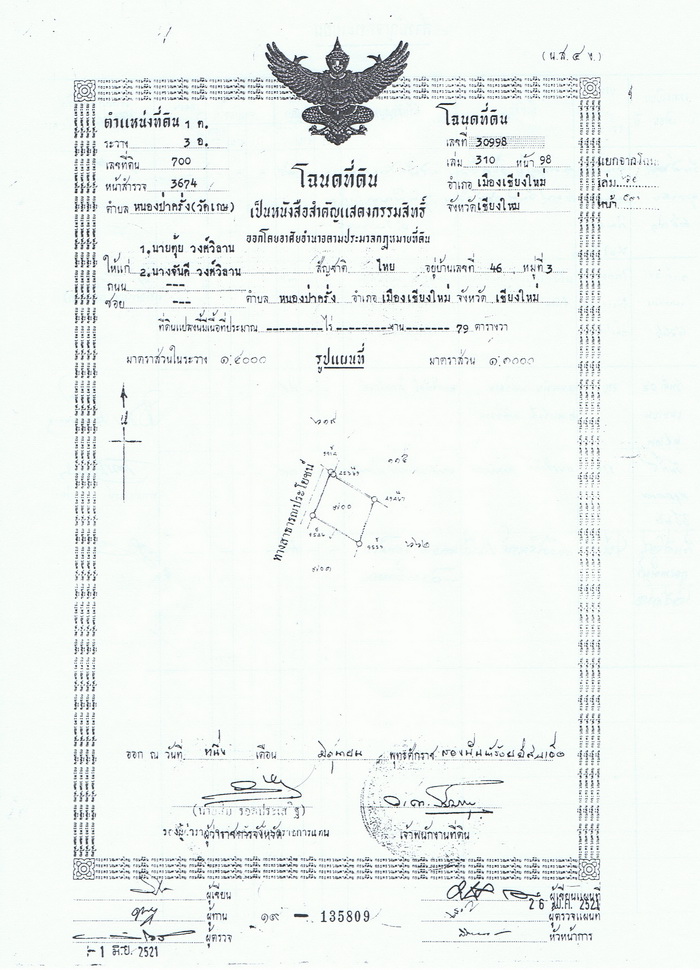 (น.ส. ๔ จ.)
ตำแหน่งที่ดิน 1 ต.
ระวาง 3 อ.
เลขที่ดิน 700
หน้าสำรวจ 3674
ตำบล หนองป่าครั่ง(วัดเกษ)
โฉนดที่ดิน
เลขที่ 30998
เล่ม 310 หน้า 98
อำเภอ เมืองเชียงใหม่
จังหวัด เชียงใหม่
เล่ม
หน้า
โฉนดที่ดิน
เป็นหนังสือสำคัญแสดงกรรมสิทธิ์
ออกโดยอาศัยอำนาจตามประมวลกฎหมายที่ดิน
1.นายตุ้ย วงศ์วิลาน
ให้แก่ 2.นางจันดี วงศ์วิลาน สัญชาติ ไทย อยู่บ้านเลขที่ 46 หมู่ที่ 3
ถนน ---
ซอย --- ตำบล หนองป่าครั่ง อำเภอ เมืองเชียงใหม่ จังหวัด เชียงใหม่
ที่ดินแปลงนี้มีเนื้อที่ประมาณ --------- ไร่ --------- งาน ------- 79 ตารางวา
มาตราส่วนในระวาง ๑:๔๐๐๐ รูปแผนที่ มาตราส่วน ๑:๑๐๐๐
ทางสาธารณประโยชน์
๗๐๐
๗๐๑
ออก ณ วันที่ หนึ่ง เดือน มิถุนายน พุทธศักราช สองพันห้าร้อยยี่สิบเอ็ด
เจ้าพนักงานที่ดิน
ผู้เขียน
ผู้ทาน
ผู้ตรวจ
-1 มิ.ย. 2521
๑๙ - 135809
ผู้เขียนแผนที่
2521
ผู้ตรวจแผนที่
หัวหน้าการ